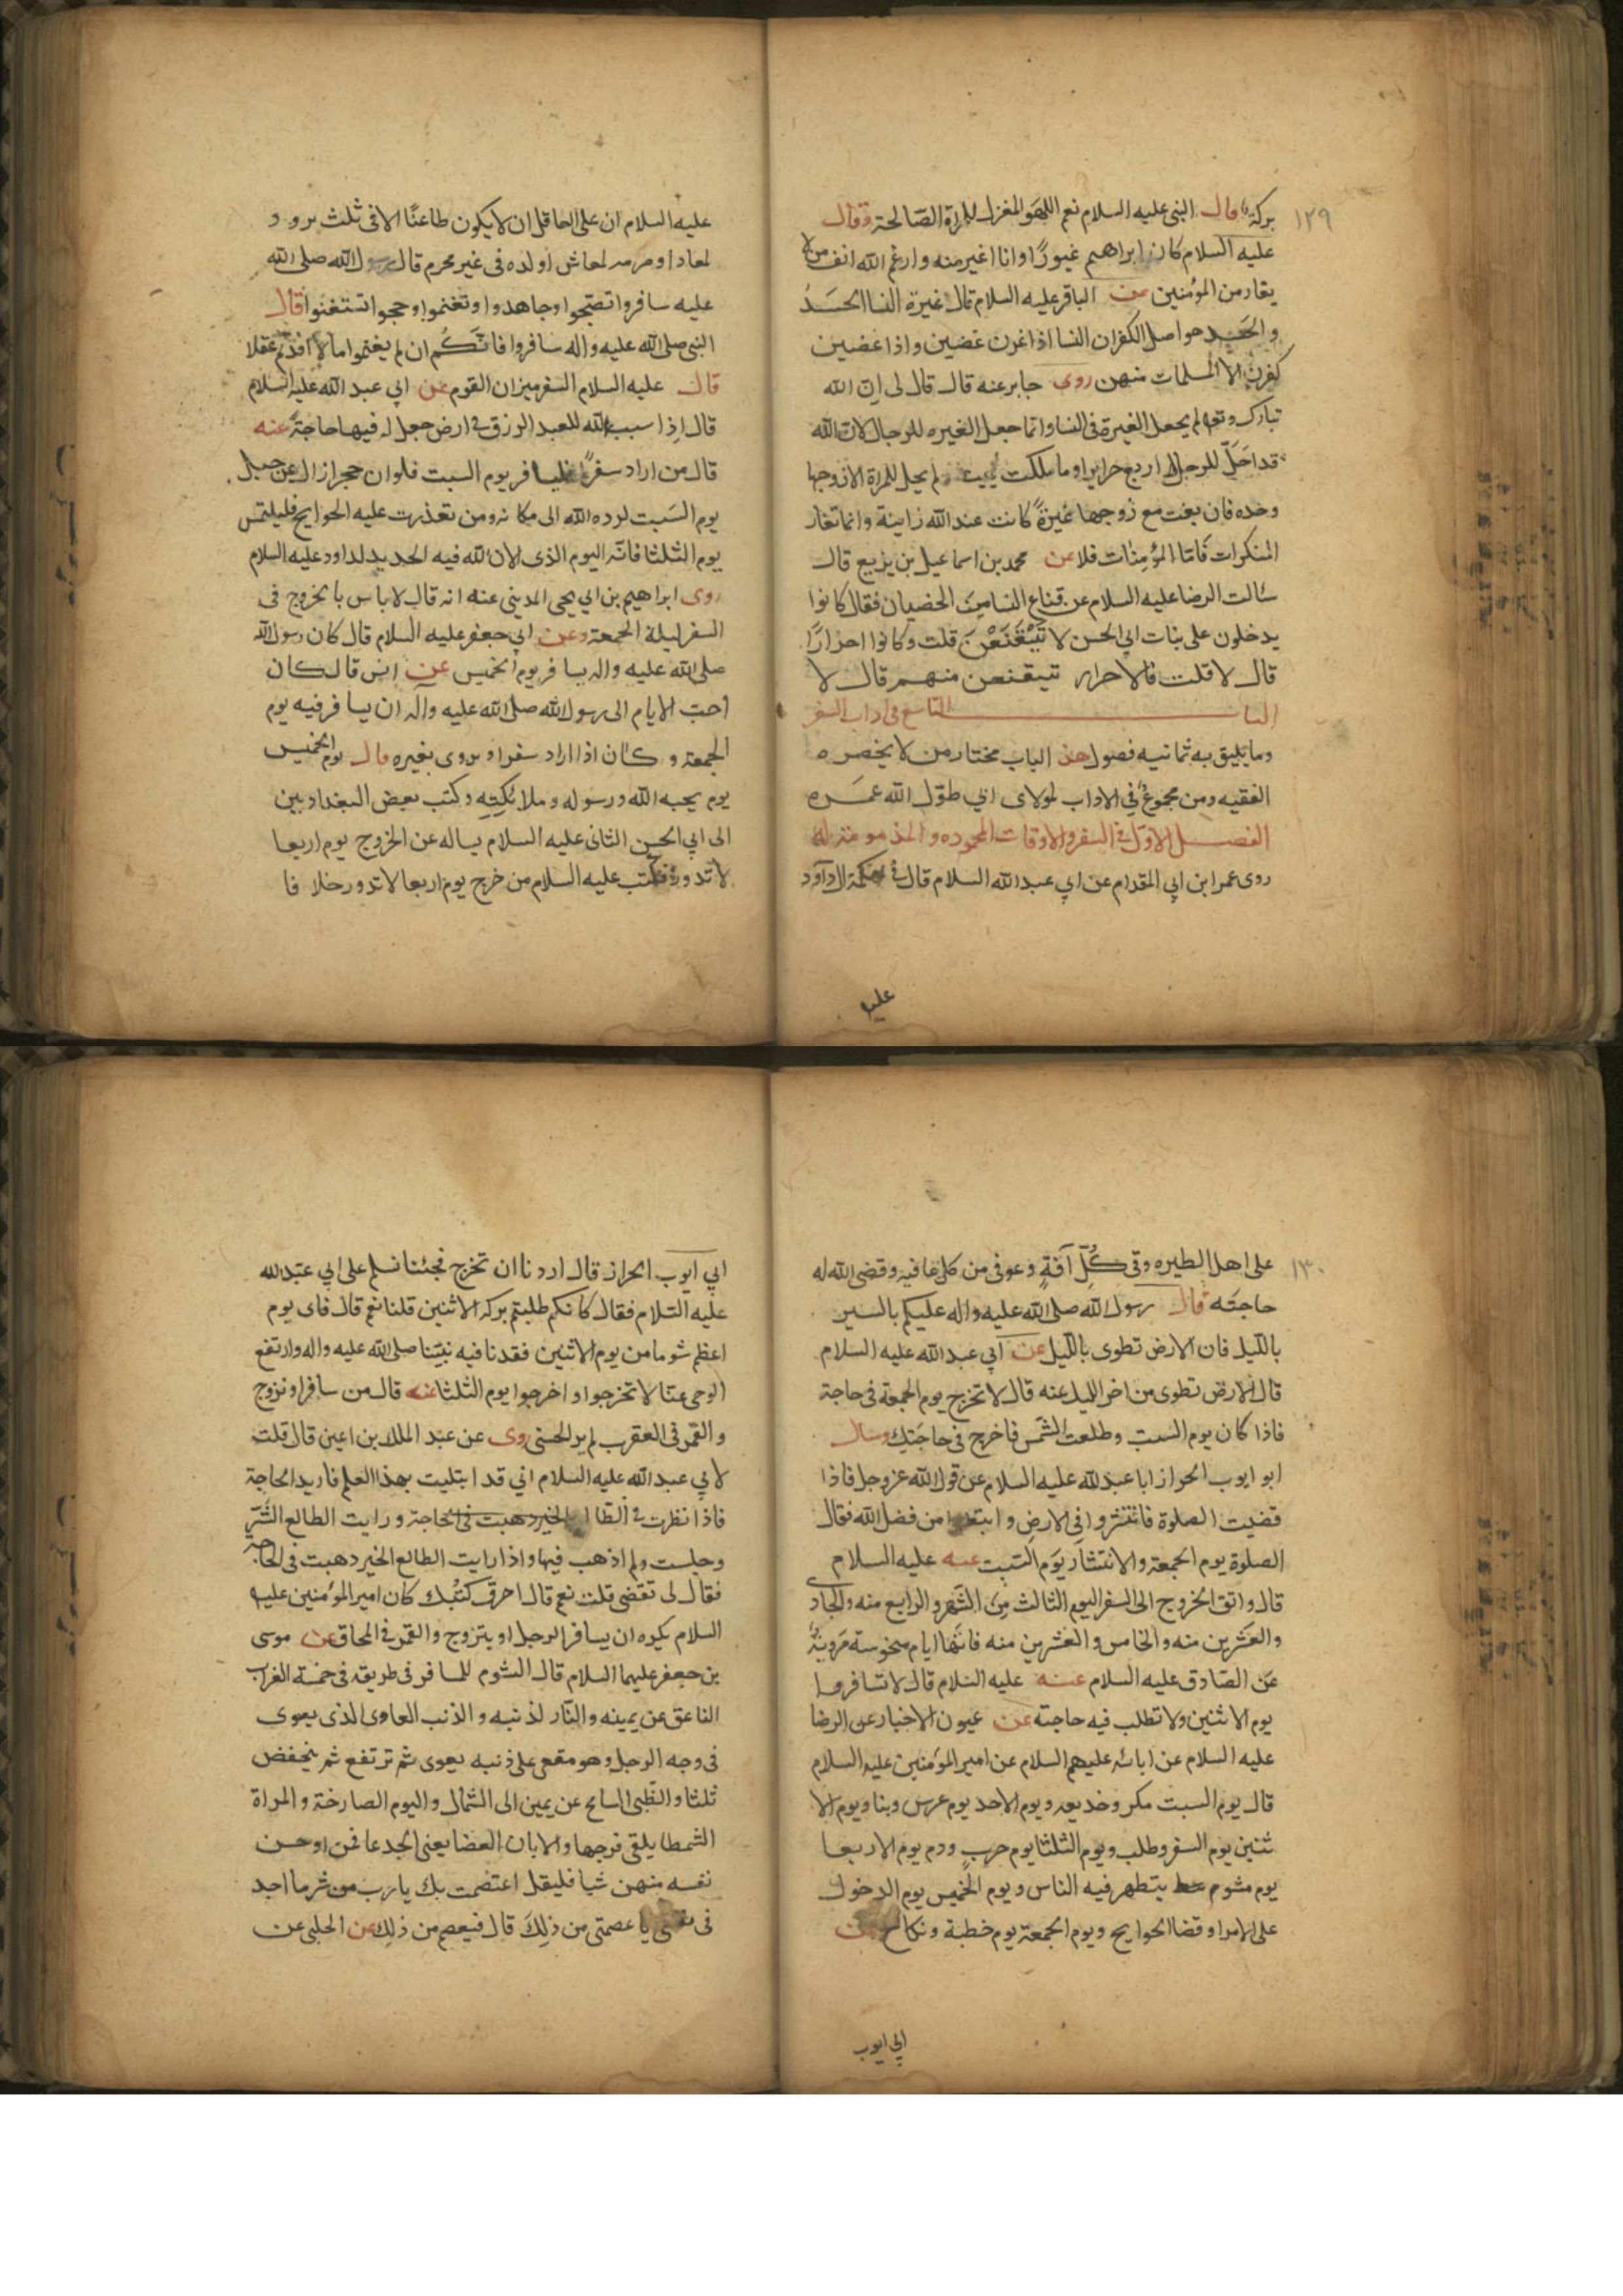 ١٢٩
بركة قال النبي عليه السلام نعم اللهو المغزل للمراة الصالحة وقال
عليه السلام كان ابراهيم غيورًا وانا اغير منه وارغم الله انف من لا
يغار من المؤمنين عن الباقر عليه السلام قال غيرة النسا الحسد
والحسد هو اصل الكفر ان النسا اذا غرن غضبن واذا غضبن
كفرن الا المسلمات منهن روى جابر عنه قال قال لي ان الله
تبارك وتعا لم يجعل الغيرة في النسا وانما جعل الغيره للرجال لان الله
قد احل للرجل اربع حراير وما ملكت يمينه ولم يحل للمراة الا زوجها
وحده فان بغت مع زوجها غيرهً كانت عند الله زانية وانما تغار
المنكرات فامّا المؤمنات فلا عن محمد بن اسماعيل بن بزيع قال
سئالت الرضا عليه السلام عن قناع النسا من الخصيان فقال كانوا
يدخلون على بنات ابي الحسن لا تَيْقَنَعْنَ قلت وكانوا احرارًا
قال لا قلت فالاحرار تتيقنعن منهم قال لا
البا التاسع في اداب السفر
وما يليق به ثمانيه فصول هذ الباب مختار من لا يحضره
الفقيه ومن مجموع في الاداب لمولاى ابي طوّل الله عمره
الفصل الاول في السفر والاوقات المحموده والمذمومة له
روى عمر ابن ابي المقدام عن ابي عبد الله السلام قال في حكمة ال داود
عليه
عليه السلام ان على العاقل ان لا يكون ظاعنًا الا في ثلث تزود
لمعاد او مرمه لمعاش او لذه في غير محرم قال رسول الله صلى الله
عليه سافروا تصحّوا وجاهدوا وتغنموا وحجوا تستغنوا قال
النبي صلى الله عليه واله سافروا فانّكم ان لم يغنموا مالا افدتم عقلا
قال عليه السلام السفر ميزان القوم عن ابي عبد الله عليه السلام
قال اذا سبب الله للعبد الرزق في ارض جعل له فيها حاجةً عنه
قال من اراد سفرًا فليسافر يوم السبت فلو ان حجرا زال عن جبل
يوم السبت لرده الله الى مكانه ومن تعذرت عليه الحوايج فليلتمس
يوم الثلثا فانّه اليوم الذى الان الله فيه الحديد لداود عليه السلام
روى ابراهيم بن ابي يحيى المديني عنه انه قال لا باس بالخروج في
السفر ليلة الجمعة وعن ابي جعفر عليه السلام قال كان رسول الله
صلى الله عليه واله يسافر يوم الخميس عن انس قال كان
احبّ الايام الى رسول الله صلى الله عليه وآله ان يسافر فيه يوم
الجمعة وكان اذا اراد سفرا ورّى بغيره قال يوم الخميس
يوم يحبه الله ورسوله وملائكته وكتب بعض البغداديين
الى ابي الحسن الثاني عليه السلام يساله عن الخروج يوم اربعا
لا تدور فكتب عليه السلام من خرج يوم اربعا لا تدور خلافا
١٣٠
على اهل الطيره وقى كُلِّ آفةٍ وعوفى من كل عافيه وقضى الله له
حاجته قال رسول الله صلى الله عليه واله عليكم بالسير
بالليل فان الارض تطوى بالليل عن ابي عبد الله عليه السلام
قال الارض تطوى من اخر الليل عنه قال لا تخرج يوم الجمعة في حاجة
فاذا كان يوم السبت وطلعت الشمس فاخرج في حاجتك وسال
ابو ايوب الخراز ابا عبد الله عليه السلام عن قول الله عزوجل فاذا
قضيت الصلوة فانتشروا في الارض وابتغوا من فضل الله فقال
الصلوة يوم الجمعة والانتشار يوم السبت عنه عليه السلام
قال واتق الخروج الى السفر اليوم الثالث من الشهر والرابع منه والحادي
والعشرين منه والخامس والعشرين منه فانّها ايام منحوسة مروية
عن الصادق عليه السلام عنه عليه السلام قال لا تسافروا
يوم الاثنين ولا تطلب فيه حاجته عن عيون الاخبار عن الرضا
عليه السلام عن ابائه عليهم السلام عن امير المؤمنين عليه السلام
قال يوم السبت مكر وخديعه ويوم الاحد يوم عرس وبنا ويوم الا
ثنين يوم السفر وطلب ويوم الثلثا يوم حرب ودم يوم الاربعا
يوم مشوم يتطهر فيه الناس ويوم الخميس يوم الدخول
على الامرا وقضا الحوايج ويوم الجمعة يوم خطبة ونكاح عن
ابي ايوب
ابي ايوب الخراز قال اردنا ان تخرج فجئنا نسلم على ابي عبد الله
عليه السلام فقال كانكم طلبتم بركه الاثنين قلنا نعم قال فاى يوم
اعظم شوما من يوم الاثنين فقدنا فيه نبيّنا صلى الله عليه واله وارتفع
الوحى عنّا لا تخرجوا واخرجوا يوم الثلثا عنه قال من سافر او تزوج
والقمر في العقرب لم ير الحسنى روى عن عبد الملك بن اعين قال قلت
لابي عبد الله عليه السلام اني قد ابتليت بهذا العلم فاريد الحاجة
فاذا نظرت في الطا الخير ذهبت في الحاجة ورايت الطالع الشر
وجلست ولم اذهب فيها واذا رايت الطالع الخير ذهبت في الحاجة
فقال لى تقضى قلت نعم قال احرق كتبك كان امير المؤمنين عليه
السلام يكره ان يسافر الرجل او يتزوج والقمر في المحاق عن موسى
بن جعفر عليهما السلام قال الشوم للمسافر في طريقه في خمسة الغراب
الناعق عن يمينه والنّار لذنبه والذنب العاوى الذى يعوى
في وجه الرجل وهو مقعى على ذنبه يعوى ثم ترتفع ثم ينخفض
ثلثا والظبى السانح عن يمين الى الشمال واليوم الصارخة والمراة
الشمطا يلقى فرجها والاتان العضبا يعنى الجدعا فمن اوحس
نفسه منهن شيا فليقل اعتصمت بك يا رب من شر ما اجد
في نفسى يا عصمتى من ذلك قال فيعصم من ذلك عن الحلبى عن